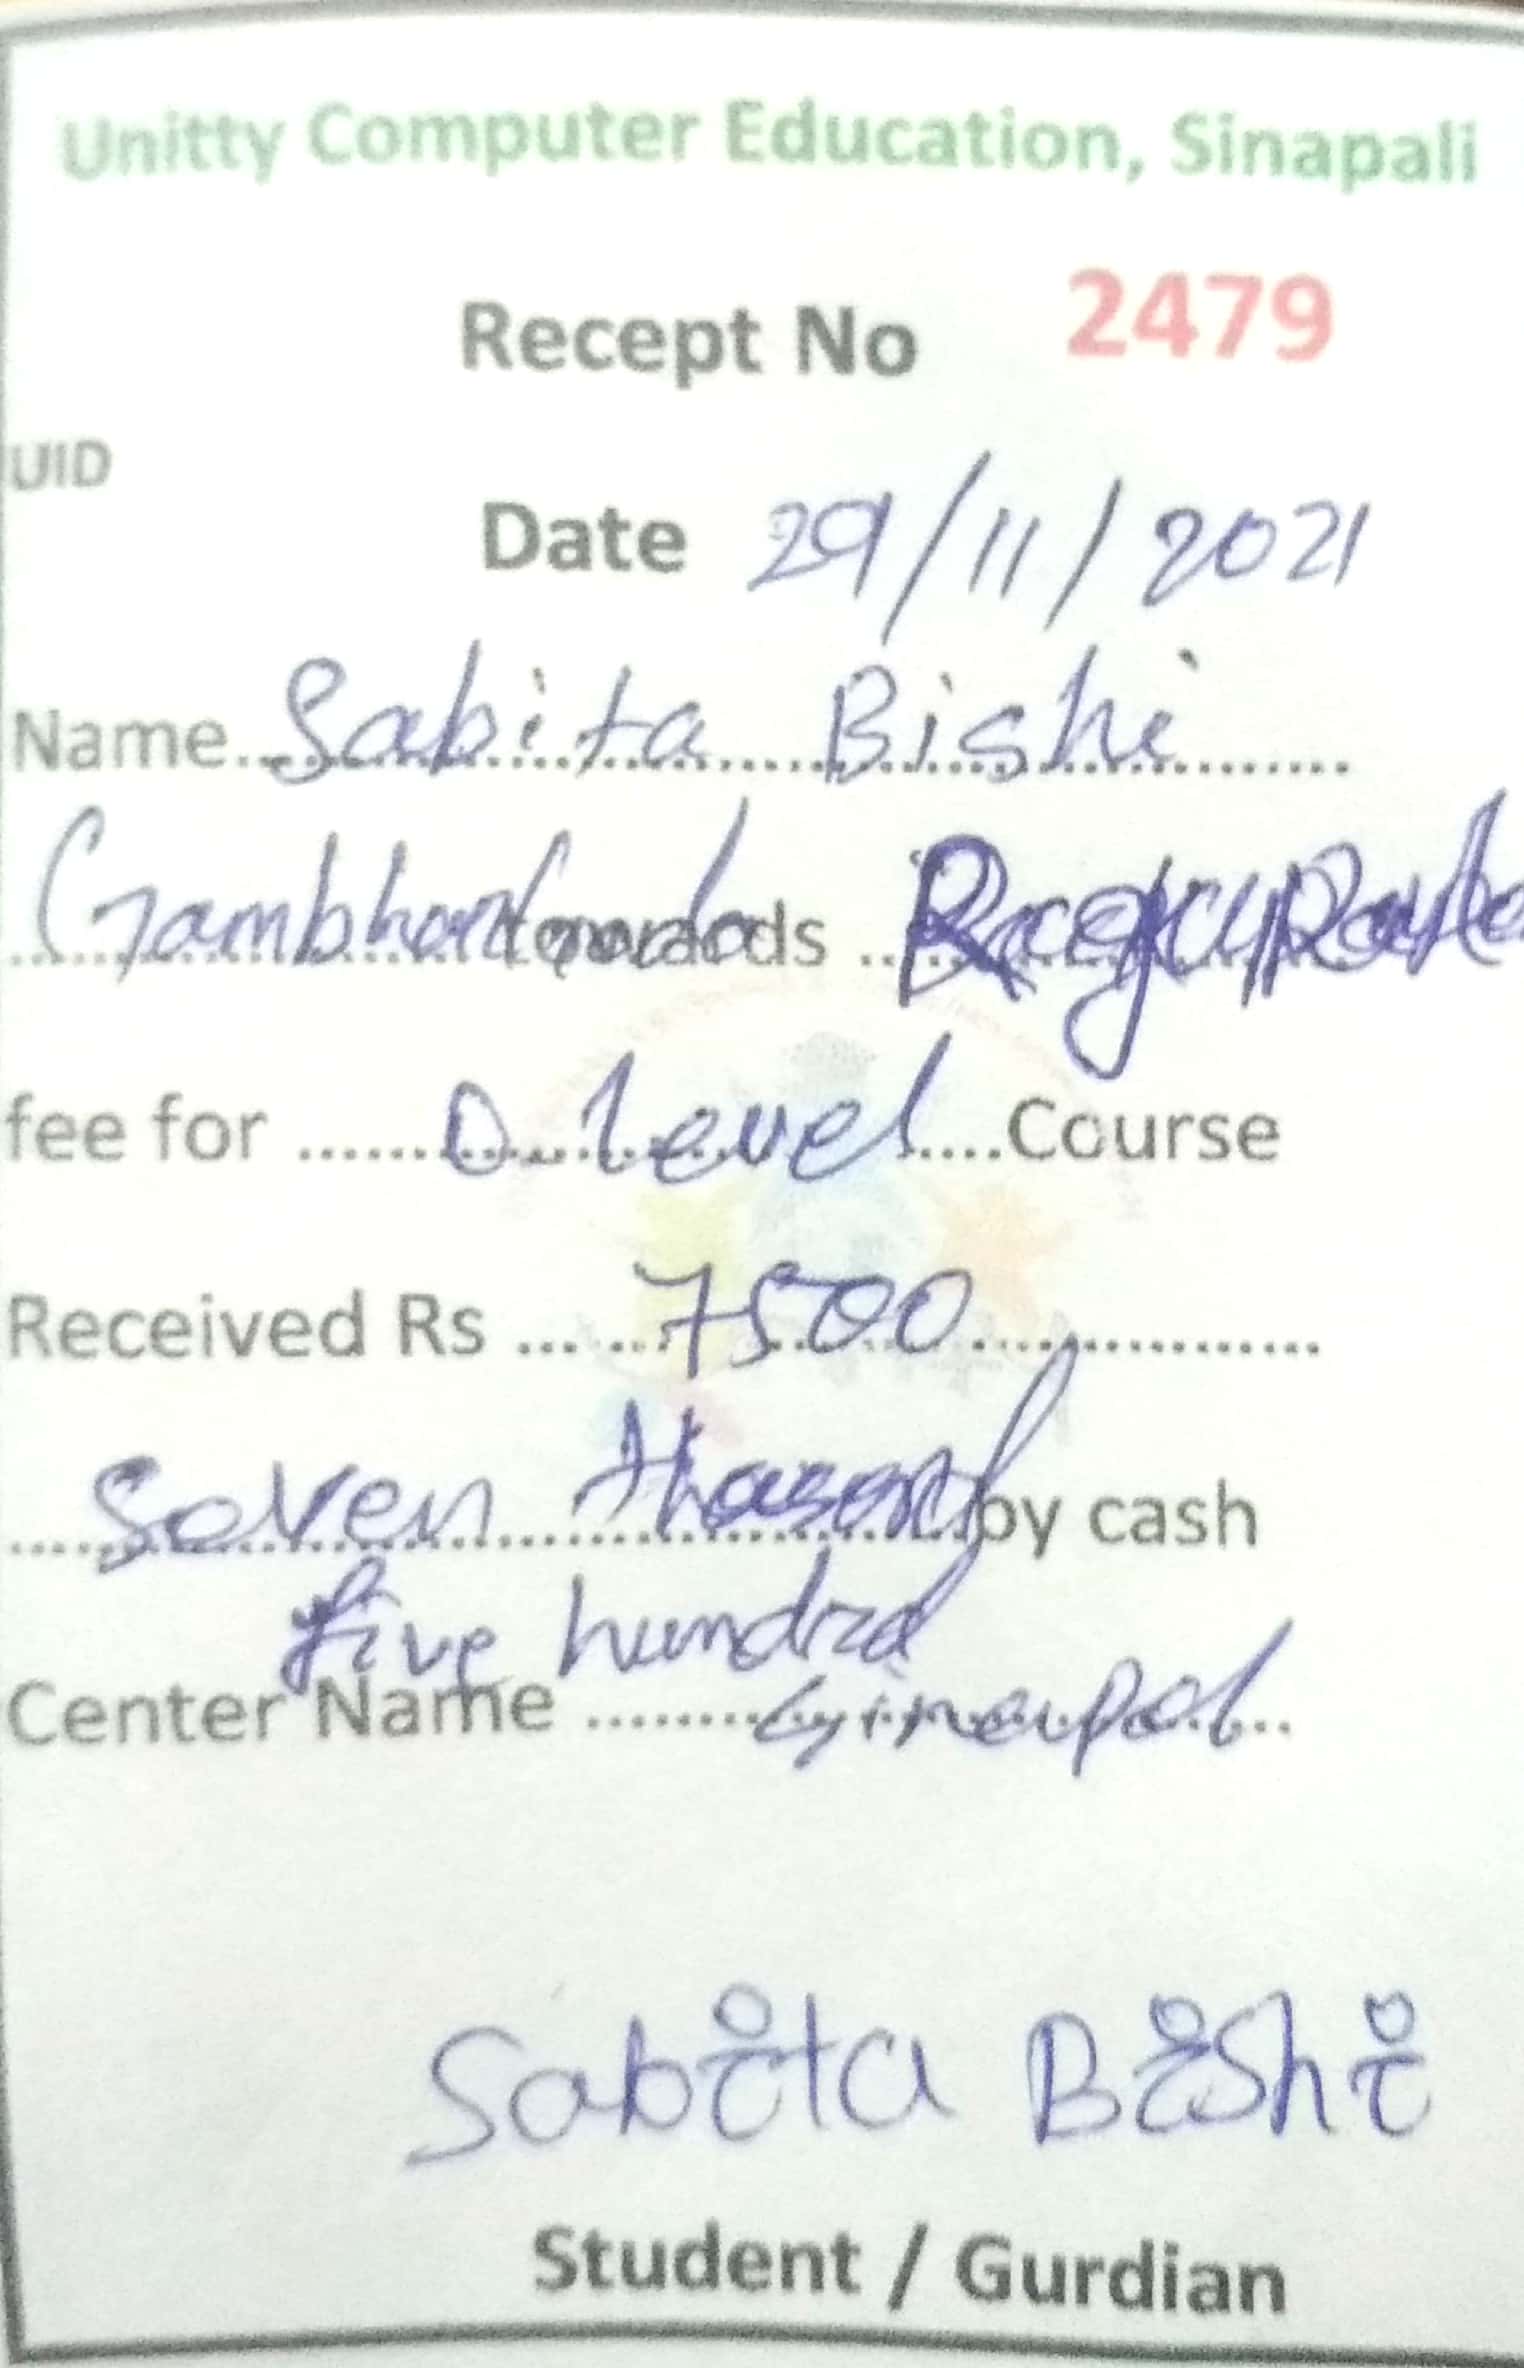 Unitty Computer Education, Sinapali
Recept No 2479
UID
Date 29/11/2021
Name Sabita Bishi
towards
fee for O level Course
Received Rs 7500
Seven by cash
five hundred
Center Name
Sabita Bishi
Student / Gurdian